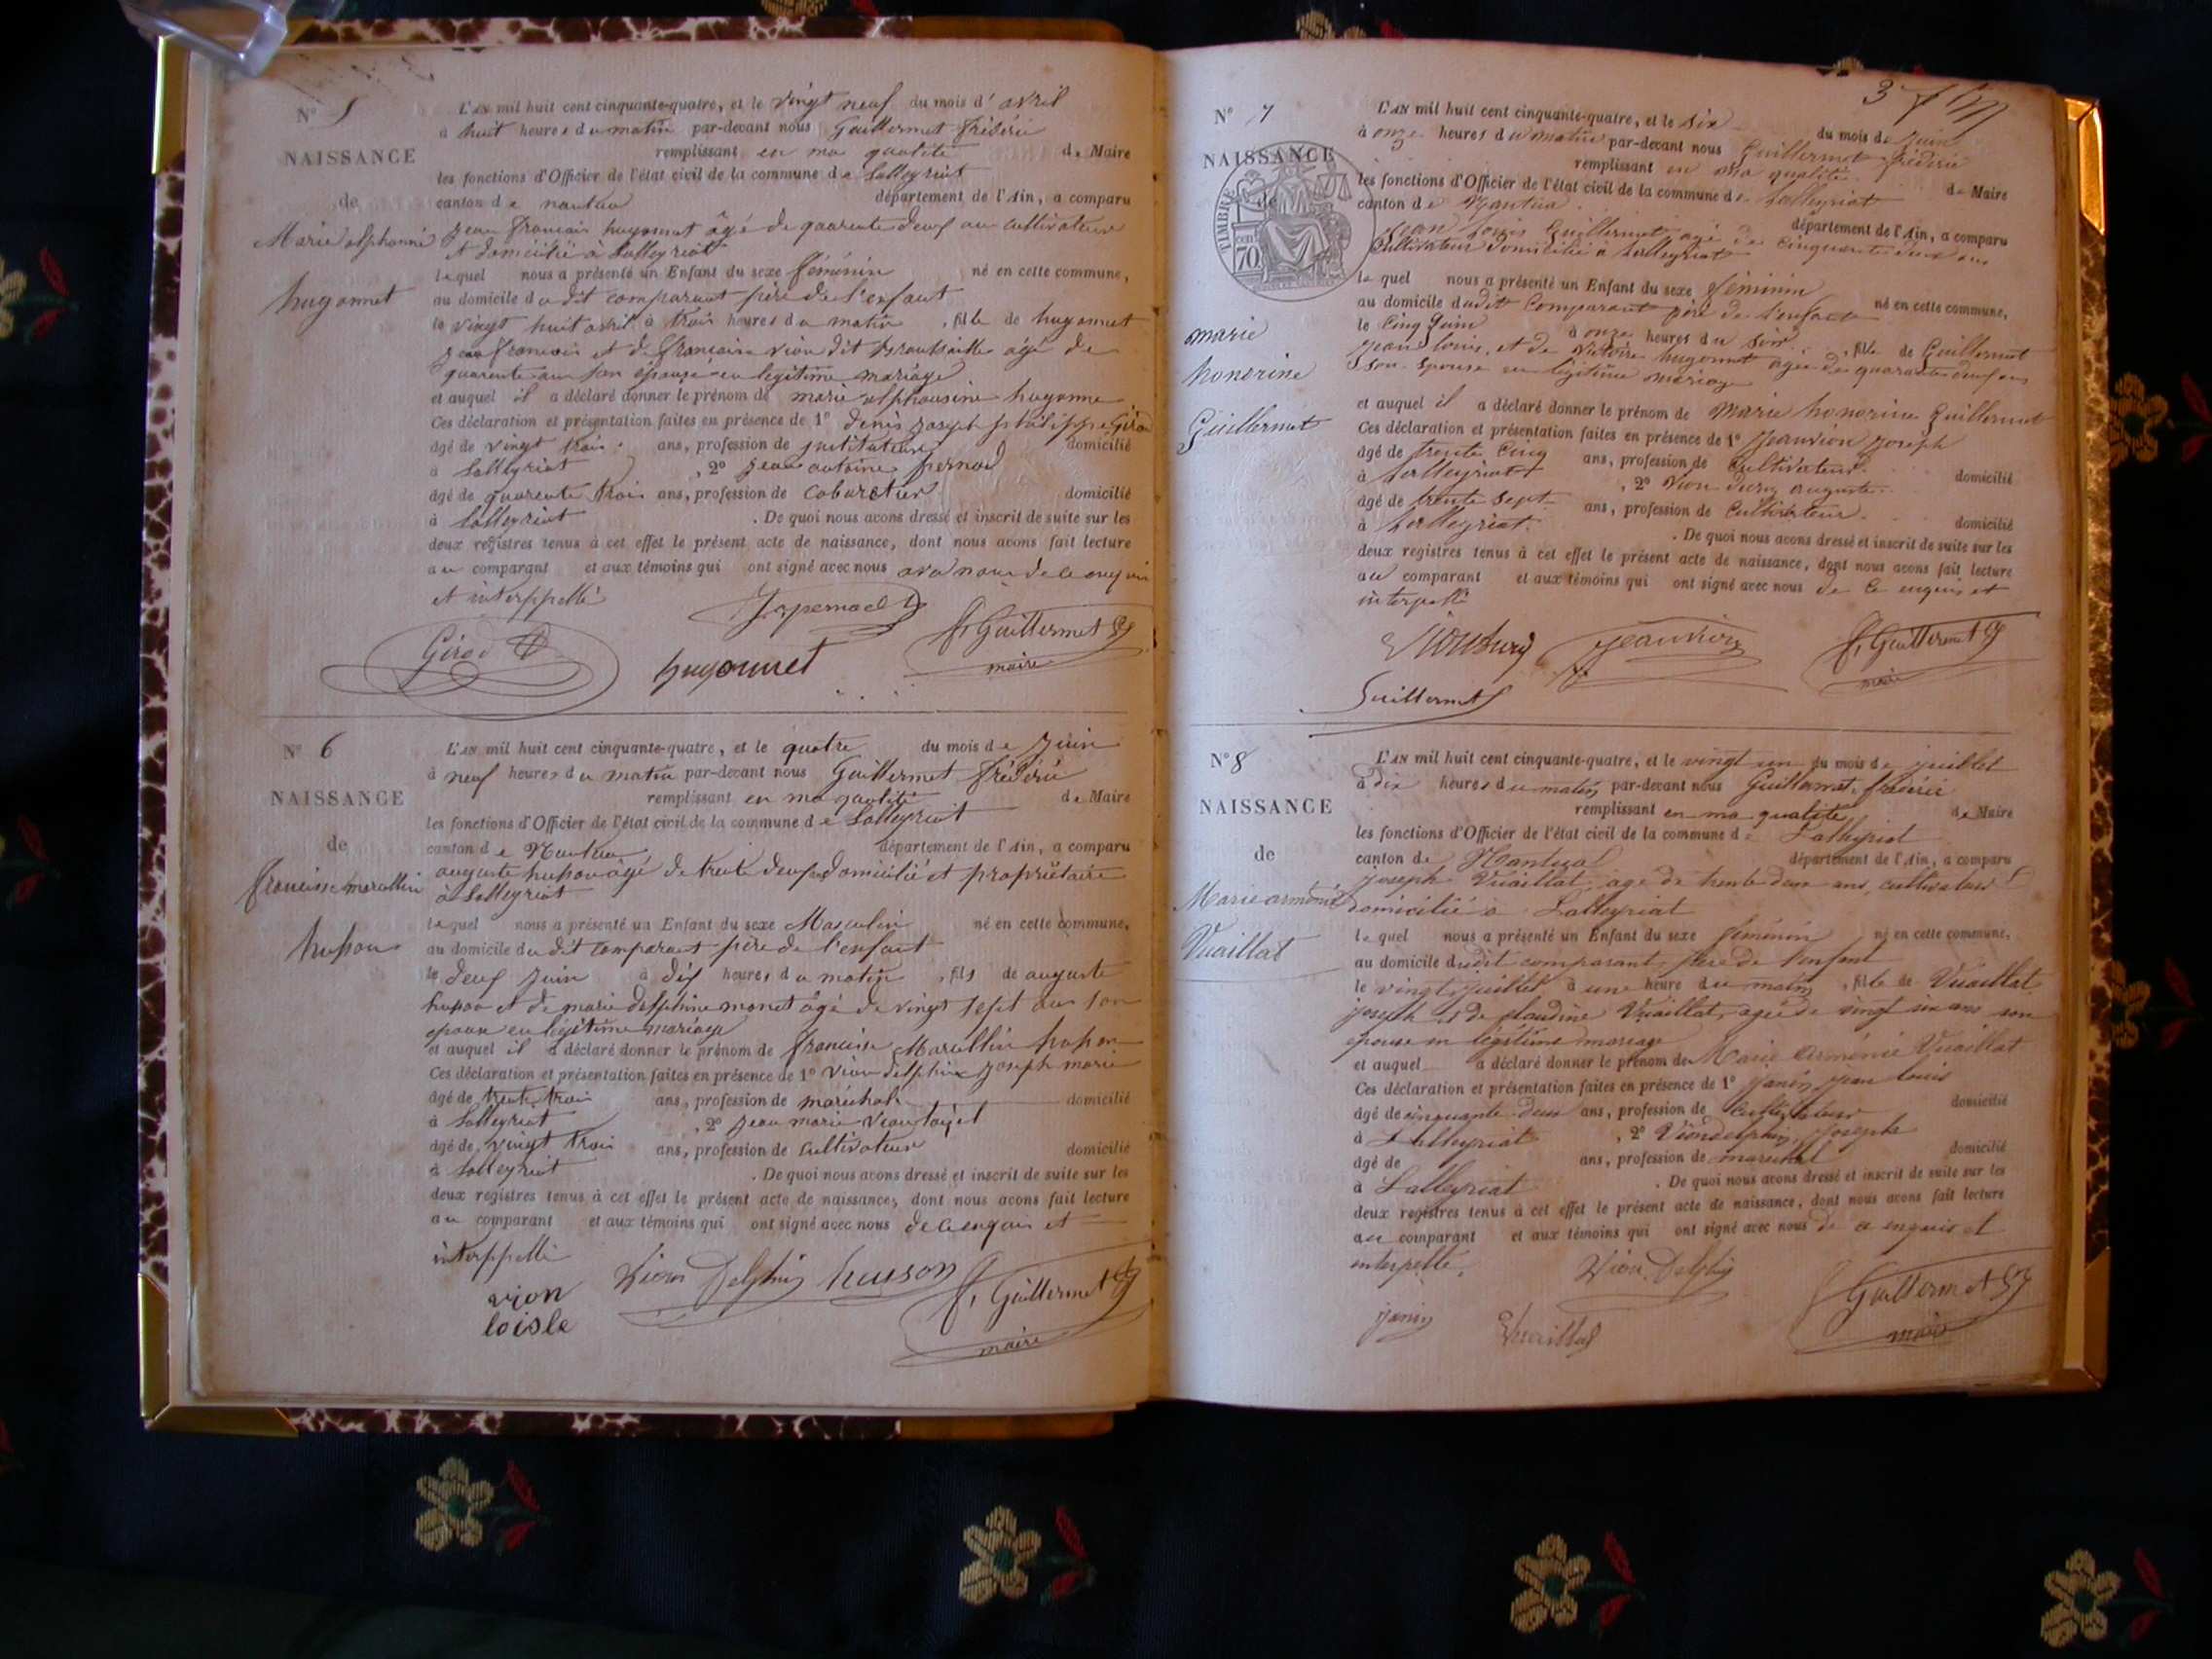 N° 5
NAISSANCE
de
Marie alphonsine
hugonnet
L'AN mil huit cent cinquante-quatre, et le vingt neuf du mois d' avril
à huit heures du matin par-devant nous Guillermet frédéric
remplissant en ma qualité de Maire
les fonctions d'Officier de l'état civil de la commune de Lalleyriat
canton de nantua département de l'Ain, a comparu
jean francois hugonnet âgé de quarente deux ans cultivateur
et domicilié à Lalleyriat
lequel nous a présenté un Enfant du sexe féminin né en cette commune,
au domicile du dit comparant père de l'enfant
le vingt huit avril à trois heures du matin , fille de hugonnet
jean francois et de francoise vion dit âgé de
quarente ans son épouse en legitime mariage
et auquel il a déclaré donner le prénom de marie alphonsine hugonne
Ces déclaration et présentation faites en présence de 1° denis joseph philippe Girod
âgé de vingt trois ans, profession de instituteur domicilié
à Lalleyriat , 2° jean antoine pernod
âgé de quarente trois ans, profession de cabaretier domicilié
à Lalleyriat . De quoi nous avons dressé et inscrit de suite sur les
deux registres tenus à cet effet le présent acte de naissance, dont nous avons fait lecture
au comparant et aux témoins qui ont signé avec nous de ce enquis
et interppellé
Girod
hugonnet
f. Guillermet
maire
N° 6
NAISSANCE
de
francise marcellin
husson
L'AN mil huit cent cinquante-quatre, et le quatre du mois de juin
à neuf heures du matin par-devant nous Guillermet frédéric
remplissant en ma qualité de Maire
les fonctions d'Officier de l'état civil de la commune de Lalleyriat
canton de Nantua département de l'Ain, a comparu
auguste husson âgé de trente deux domicilié et propriétaire
à Lalleyriat
lequel nous a présenté un Enfant du sexe Masculin né en cette commune,
au domicile du dit comparant père de l'enfant
le deux juin à dix heures du matin , fils de auguste
husson et de marie delphine monet âgé de vingt sept ans son
epouse en legitime mariage
et auquel il a déclaré donner le prénom de francise Marcellin husson
Ces déclaration et présentation faites en présence de 1° vion delphin joseph marie
âgé de trente trois ans, profession de maréchal domicilié
à Lalleyriat , 2° jean marie
âgé de vingt trois ans, profession de cultivateur domicilié
à Lalleyriat . De quoi nous avons dressé et inscrit de suite sur les
deux registres tenus à cet effet le présent acte de naissance, dont nous avons fait lecture
au comparant et aux témoins qui ont signé avec nous de ce enquis et
interppellé
vion
loisle
Vion Delphin
husson
f. Guillermet
maire
N° 7
NAISSANCE
de
TIMBRE
70
marie
honorine
Guillermet
3
L'AN mil huit cent cinquante-quatre, et le six du mois de juin
à onze heures du matin par-devant nous Guillermet frédéric
remplissant en ma qualité de Maire
les fonctions d'Officier de l'état civil de la commune de Lalleyriat
canton de Nantua département de l'Ain, a comparu
jean Louis Guillermet agé de cinquante deux ans
cultivateur domicilié à Lalleyriat
lequel nous a présenté un Enfant du sexe féminin né en cette commune,
au domicile dudit comparant père de l'enfant
le cinq juin à onze heures du soir , fille de Guillermet
jean louis, et de victoire hugonnet agée de quarante deux ans
son épouse en légitime mariage
et auquel il a déclaré donner le prénom de marie honorine Guillermet
Ces déclaration et présentation faites en présence de 1° jeanvion joseph
âgé de trente cinq ans, profession de cultivateur domicilié
à Lalleyriat , 2° vion dury auguste
âgé de trente sept ans, profession de cultivateur domicilié
à Lalleyriat . De quoi nous avons dressé et inscrit de suite sur les
deux registres tenus à cet effet le présent acte de naissance, dont nous avons fait lecture
au comparant et aux témoins qui ont signé avec nous de ce enquis et
interpellé
Viondury
jeanvion
f. Guillermet
maire
Guillermet
N° 8
NAISSANCE
de
Marie arménie
Vuaillat
L'AN mil huit cent cinquante-quatre, et le vingt un du mois de juillet
à dix heures du matin par-devant nous Guillermet frédéric
remplissant en ma qualité de Maire
les fonctions d'Officier de l'état civil de la commune de Lalleyriat
canton de Nantua département de l'Ain, a comparu
joseph Vuaillat, agé de trente deux ans, cultivateur
domicilié à Lalleyriat
lequel nous a présenté un Enfant du sexe féminin né en cette commune,
au domicile dudit comparant, père de l'enfant
le vingt juillet à une heure du matin , fille de Vuaillat
joseph et de claudine Vuaillat, agée de vingt six ans son
épouse en légitime mariage
et auquel a déclaré donner le prénom de Marie Arménie Vuaillat
Ces déclaration et présentation faites en présence de 1° janin jean louis
âgé de cinquante deux ans, profession de cultivateur domicilié
à Lalleyriat , 2° Viondelphin, joseph
âgé de ans, profession de maréchal domicilié
à Lalleyriat . De quoi nous avons dressé et inscrit de suite sur les
deux registres tenus à cet effet le présent acte de naissance, dont nous avons fait lecture
au comparant et aux témoins qui ont signé avec nous de ce enquis et
interpellé.
Vion Delphin
janin
Vuaillat
f. Guillermet
maire